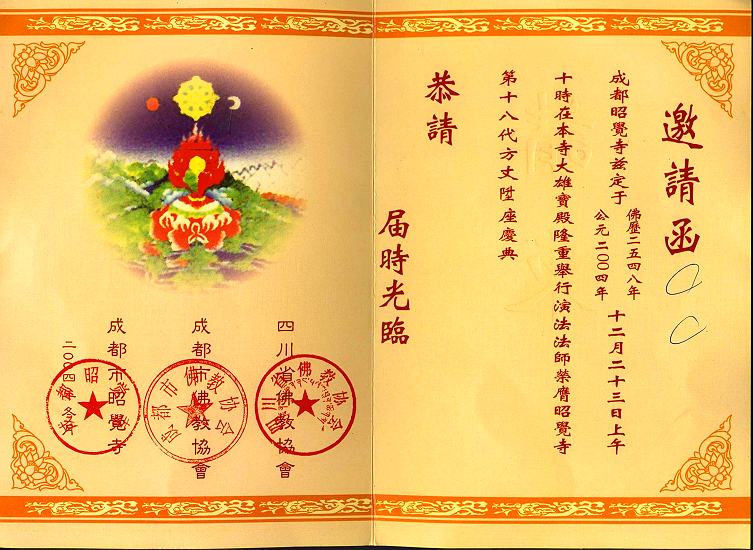 邀請函
成都昭覺寺茲定于
佛歷二五四八年
公元二〇〇四年
十二月二十三日上午
十時在本寺大雄寶殿隆重舉行演法法師榮膺昭覺寺
第十八代方丈陞座慶典
恭請
届時光臨
四川省佛教協會
成都市佛教協會
成都市昭覺寺
成都市佛教协会